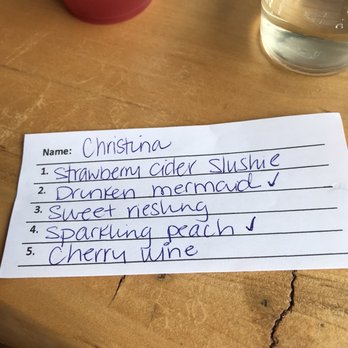 Name: Christina
1. Strawberry cider Slushie
2. Drunken mermaid ✓
3. Sweet riesling
4. Sparkling peach ✓
5. Cherry wine